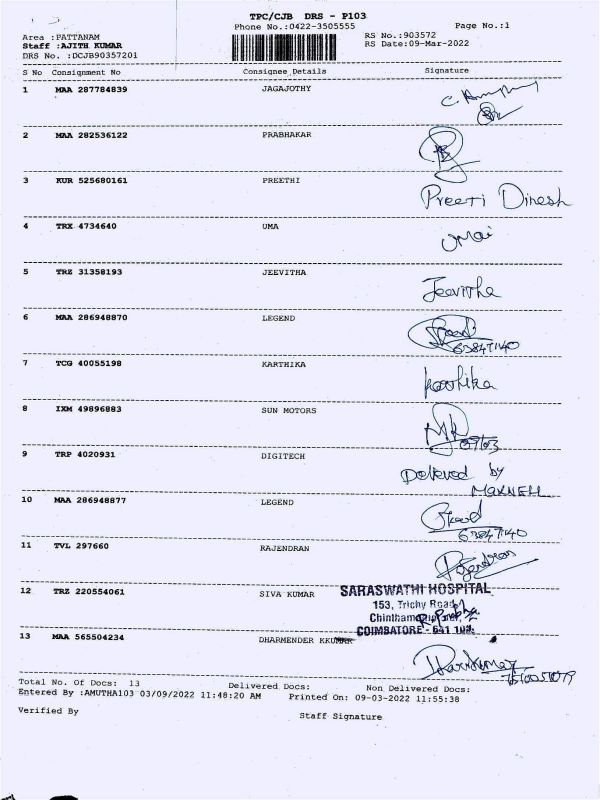 TPC/CJB DRS - P103
Phone No.:0422-3505555 Page No.:1
Area :PATTANAM RS No.:903572
Staff :AJITH KUMAR RS Date:09-Mar-2022
DRS No. :DCJB90357201
S No Consignment No Consignee Details Signature
1 MAA 287784839 JAGAJOTHY
2 MAA 282536122 PRABHAKAR
3 KUR 525680161 PREETHI
Preeti Dinesh
4 TRX 4734640 UMA
Umai
5 TRZ 31358193 JEEVITHA
Jeevitha
6 MAA 286948870 LEGEND
7 TCG 40055198 KARTHIKA
Karthika
8 IXM 49896883 SUN MOTORS
9 TRP 4020931 DIGITECH
Delieved by
10 MAA 286948877 LEGEND
11 TVL 297660 RAJENDRAN
Rajendran
12 TRZ 220554061 SIVA KUMAR
SARASWATHI HOSPITAL
153, Trichy Road,
COIMBATORE - 641
13 MAA 565504234 DHARMENDER KKUMAR
Total No. Of Docs: 13 Delivered Docs: Non Delivered Docs:
Entered By :AMUTHA103 03/09/2022 11:48:20 AM Printed On: 09-03-2022 11:55:38
Verified By Staff Signature